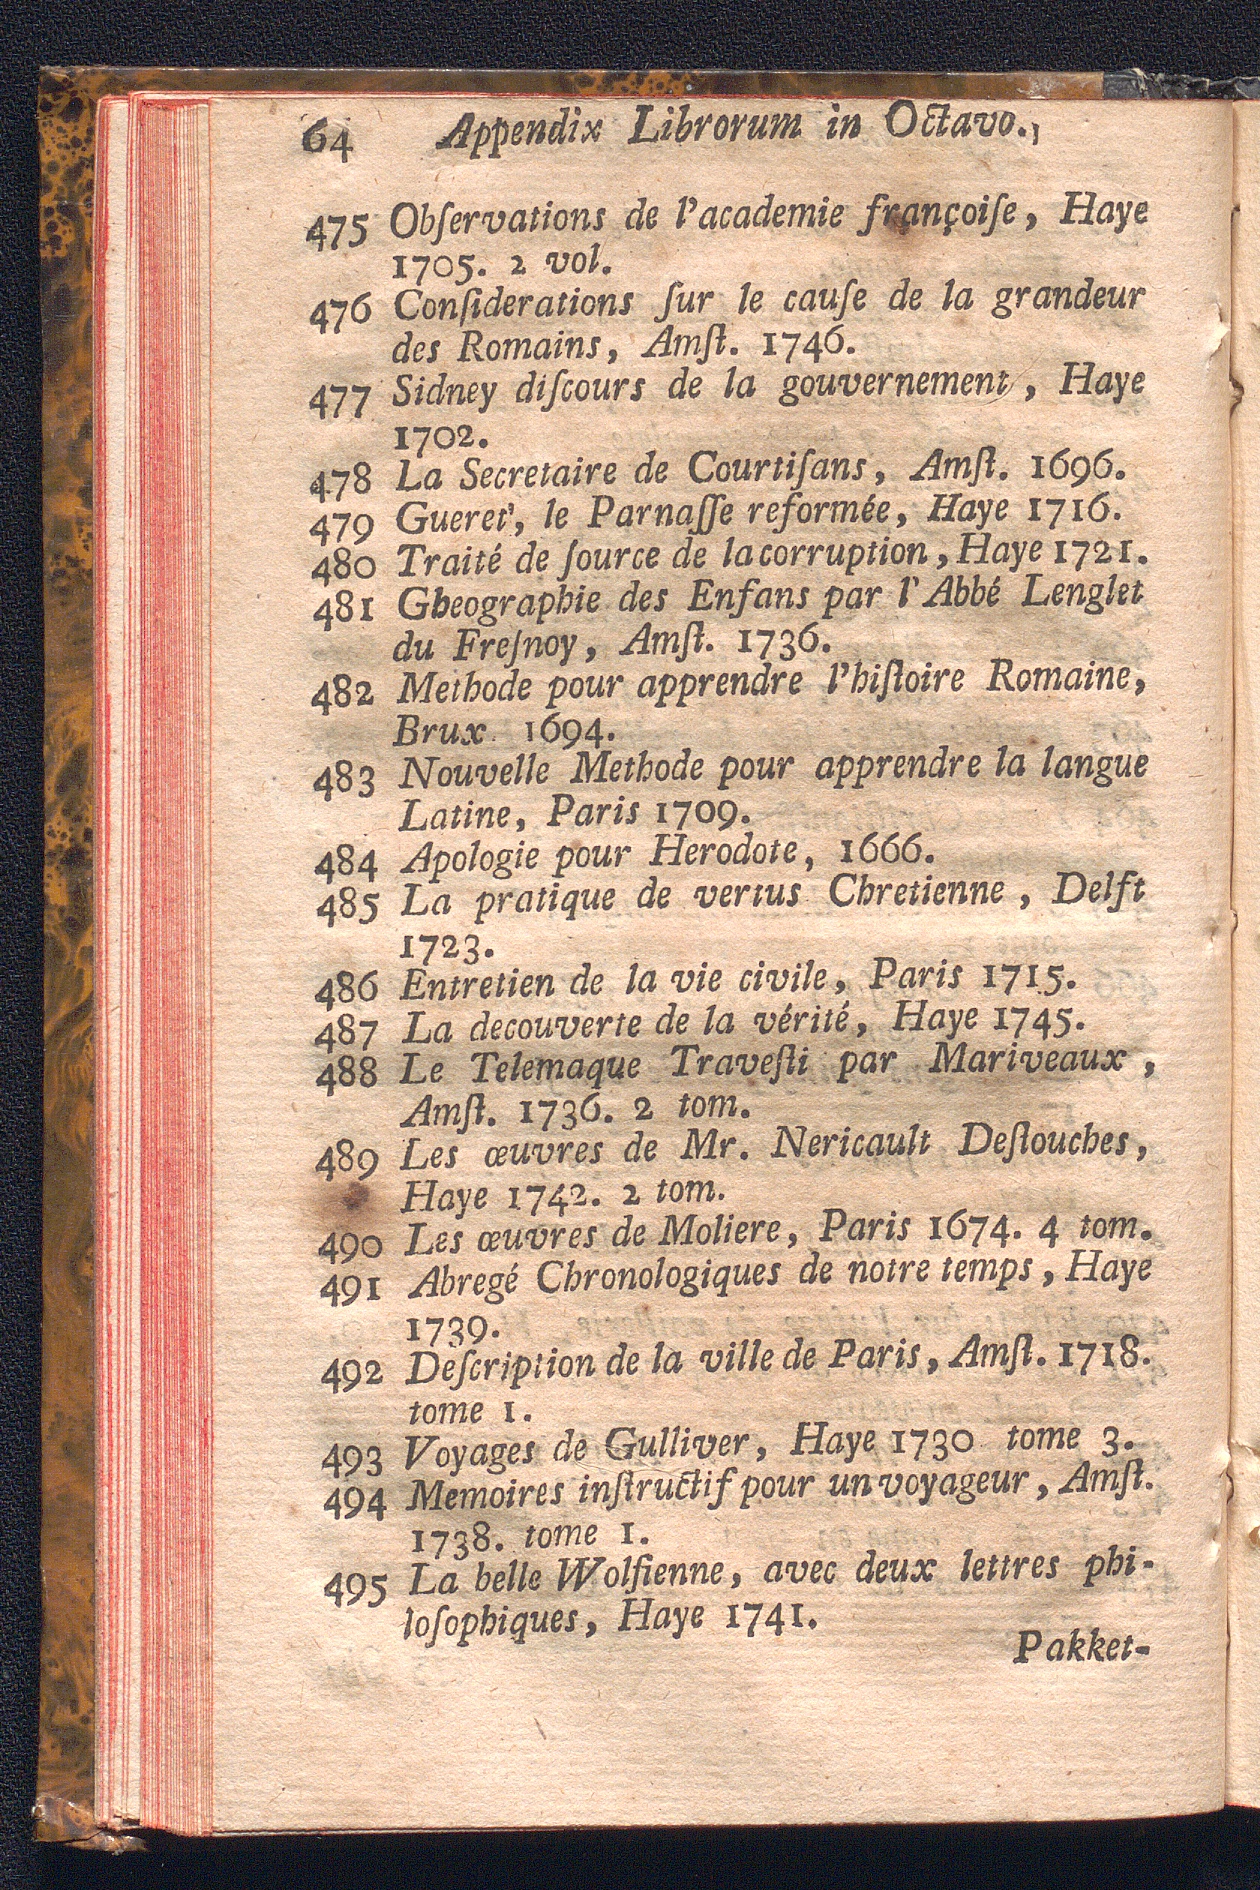 64 Appendix Librorum in Octavo.,
475 Obſervations de l'academie françoiſe, Haye
1705. 2 vol.
476 Conſiderations ſur le cauſe de la grandeur
des Romains, Amſt. 1746.
477 Sidney diſcours de la gouvernement, Haye
1702.
478 La Secretaire de Courtiſans, Amſt. 1696.
479 Gueret, le Parnaſſe reformée, Haye 1716.
480 Traité de ſource de la corruption, Haye 1721.
481 Gheographie des Enfans par l'Abbé Lenglet
du Freſnoy, Amſt. 1736.
482 Methode pour apprendre l'hiſtoire Romaine,
Brux. 1694.
483 Nouvelle Methode pour apprendre la langue
Latine, Paris 1709.
484 Apologie pour Herodote, 1666.
485 La pratique de vertus Chretienne, Delft
1723.
486 Entretien de la vie civile, Paris 1715.
487 La decouverte de la vérité, Haye 1745.
488 Le Telemaque Traveſti par Mariveaux,
Amſt. 1736. 2 tom.
489 Les œuvres de Mr. Nericault Deſtouches,
Haye 1742. 2 tom.
490 Les œuvres de Moliere, Paris 1674. 4 tom.
491 Abregé Chronologiques de notre temps, Haye
1739.
492 Deſcription de la ville de Paris, Amſt. 1718.
tome 1.
493 Voyages de Gulliver, Haye 1730 tome 3.
494 Memoires inſtructif pour un voyageur, Amſt.
1738. tome 1.
495 La belle Wolfienne, avec deux lettres phi-
loſophiques, Haye 1741.
Pakket-